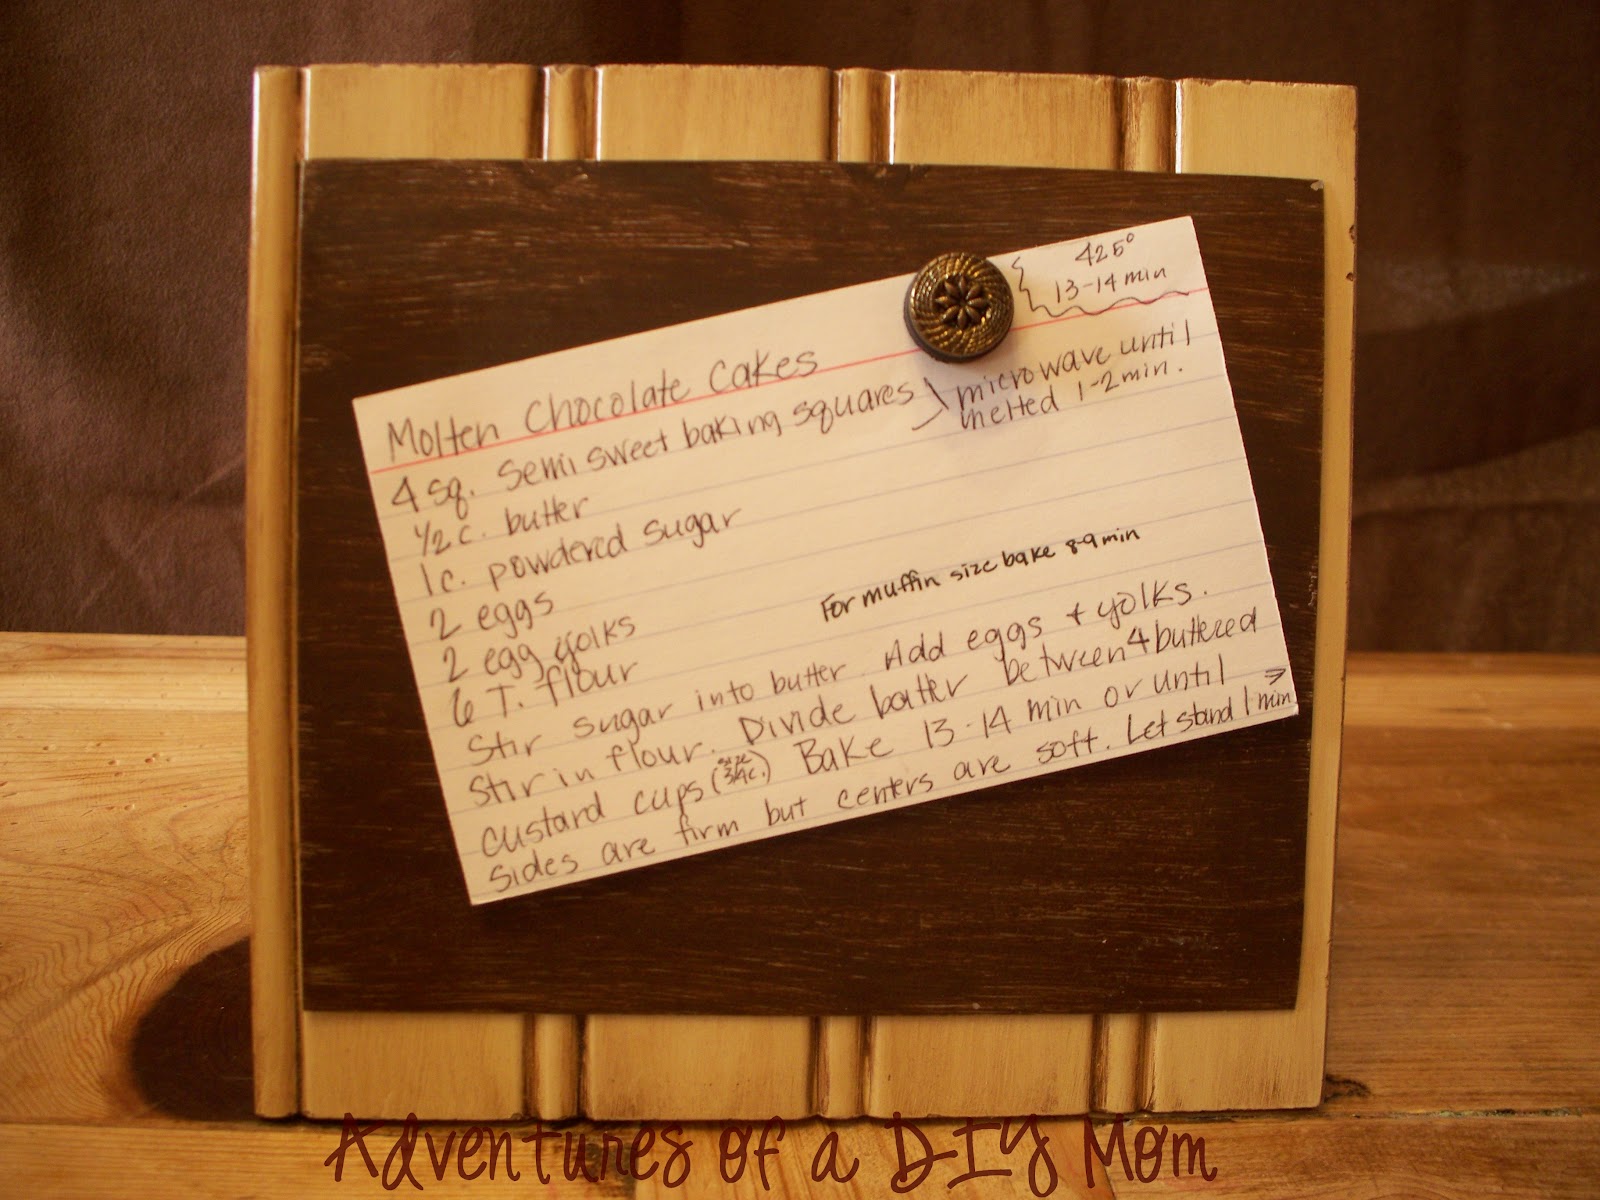 425°
13-14 min
Molten Chocolate Cakes
4 sq. semi sweet baking squares
microwave until
melted 1-2 min.
1/2 c. butter
1 c. powdered sugar
2 eggs
2 egg yolks
6 T. flour
For muffin size bake 8-9 min
Stir sugar into butter. Add eggs + yolks.
Stir in flour. Divide batter between 4 buttered
custard cups (size 3/4 c.) Bake 13-14 min or until
sides are firm but centers are soft. Let stand 1 min
Adventures of a DIY Mom